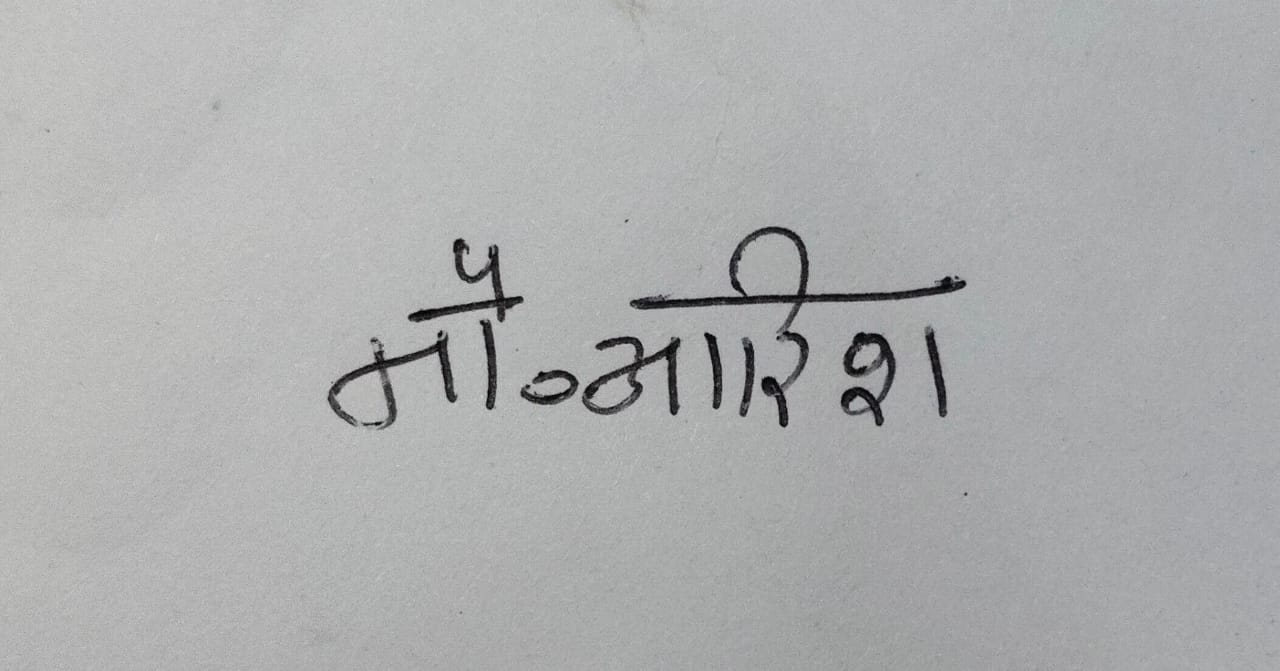 मो॰ आरिश